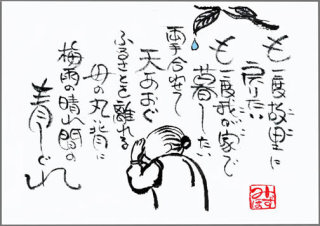 も一度故里に
戻りたい
も一度我が家で
暮したい
両手合わせて
天あおぐ
ふるさとを離れる
母の丸い背に
梅雨の晴れ間の
青しぐれ